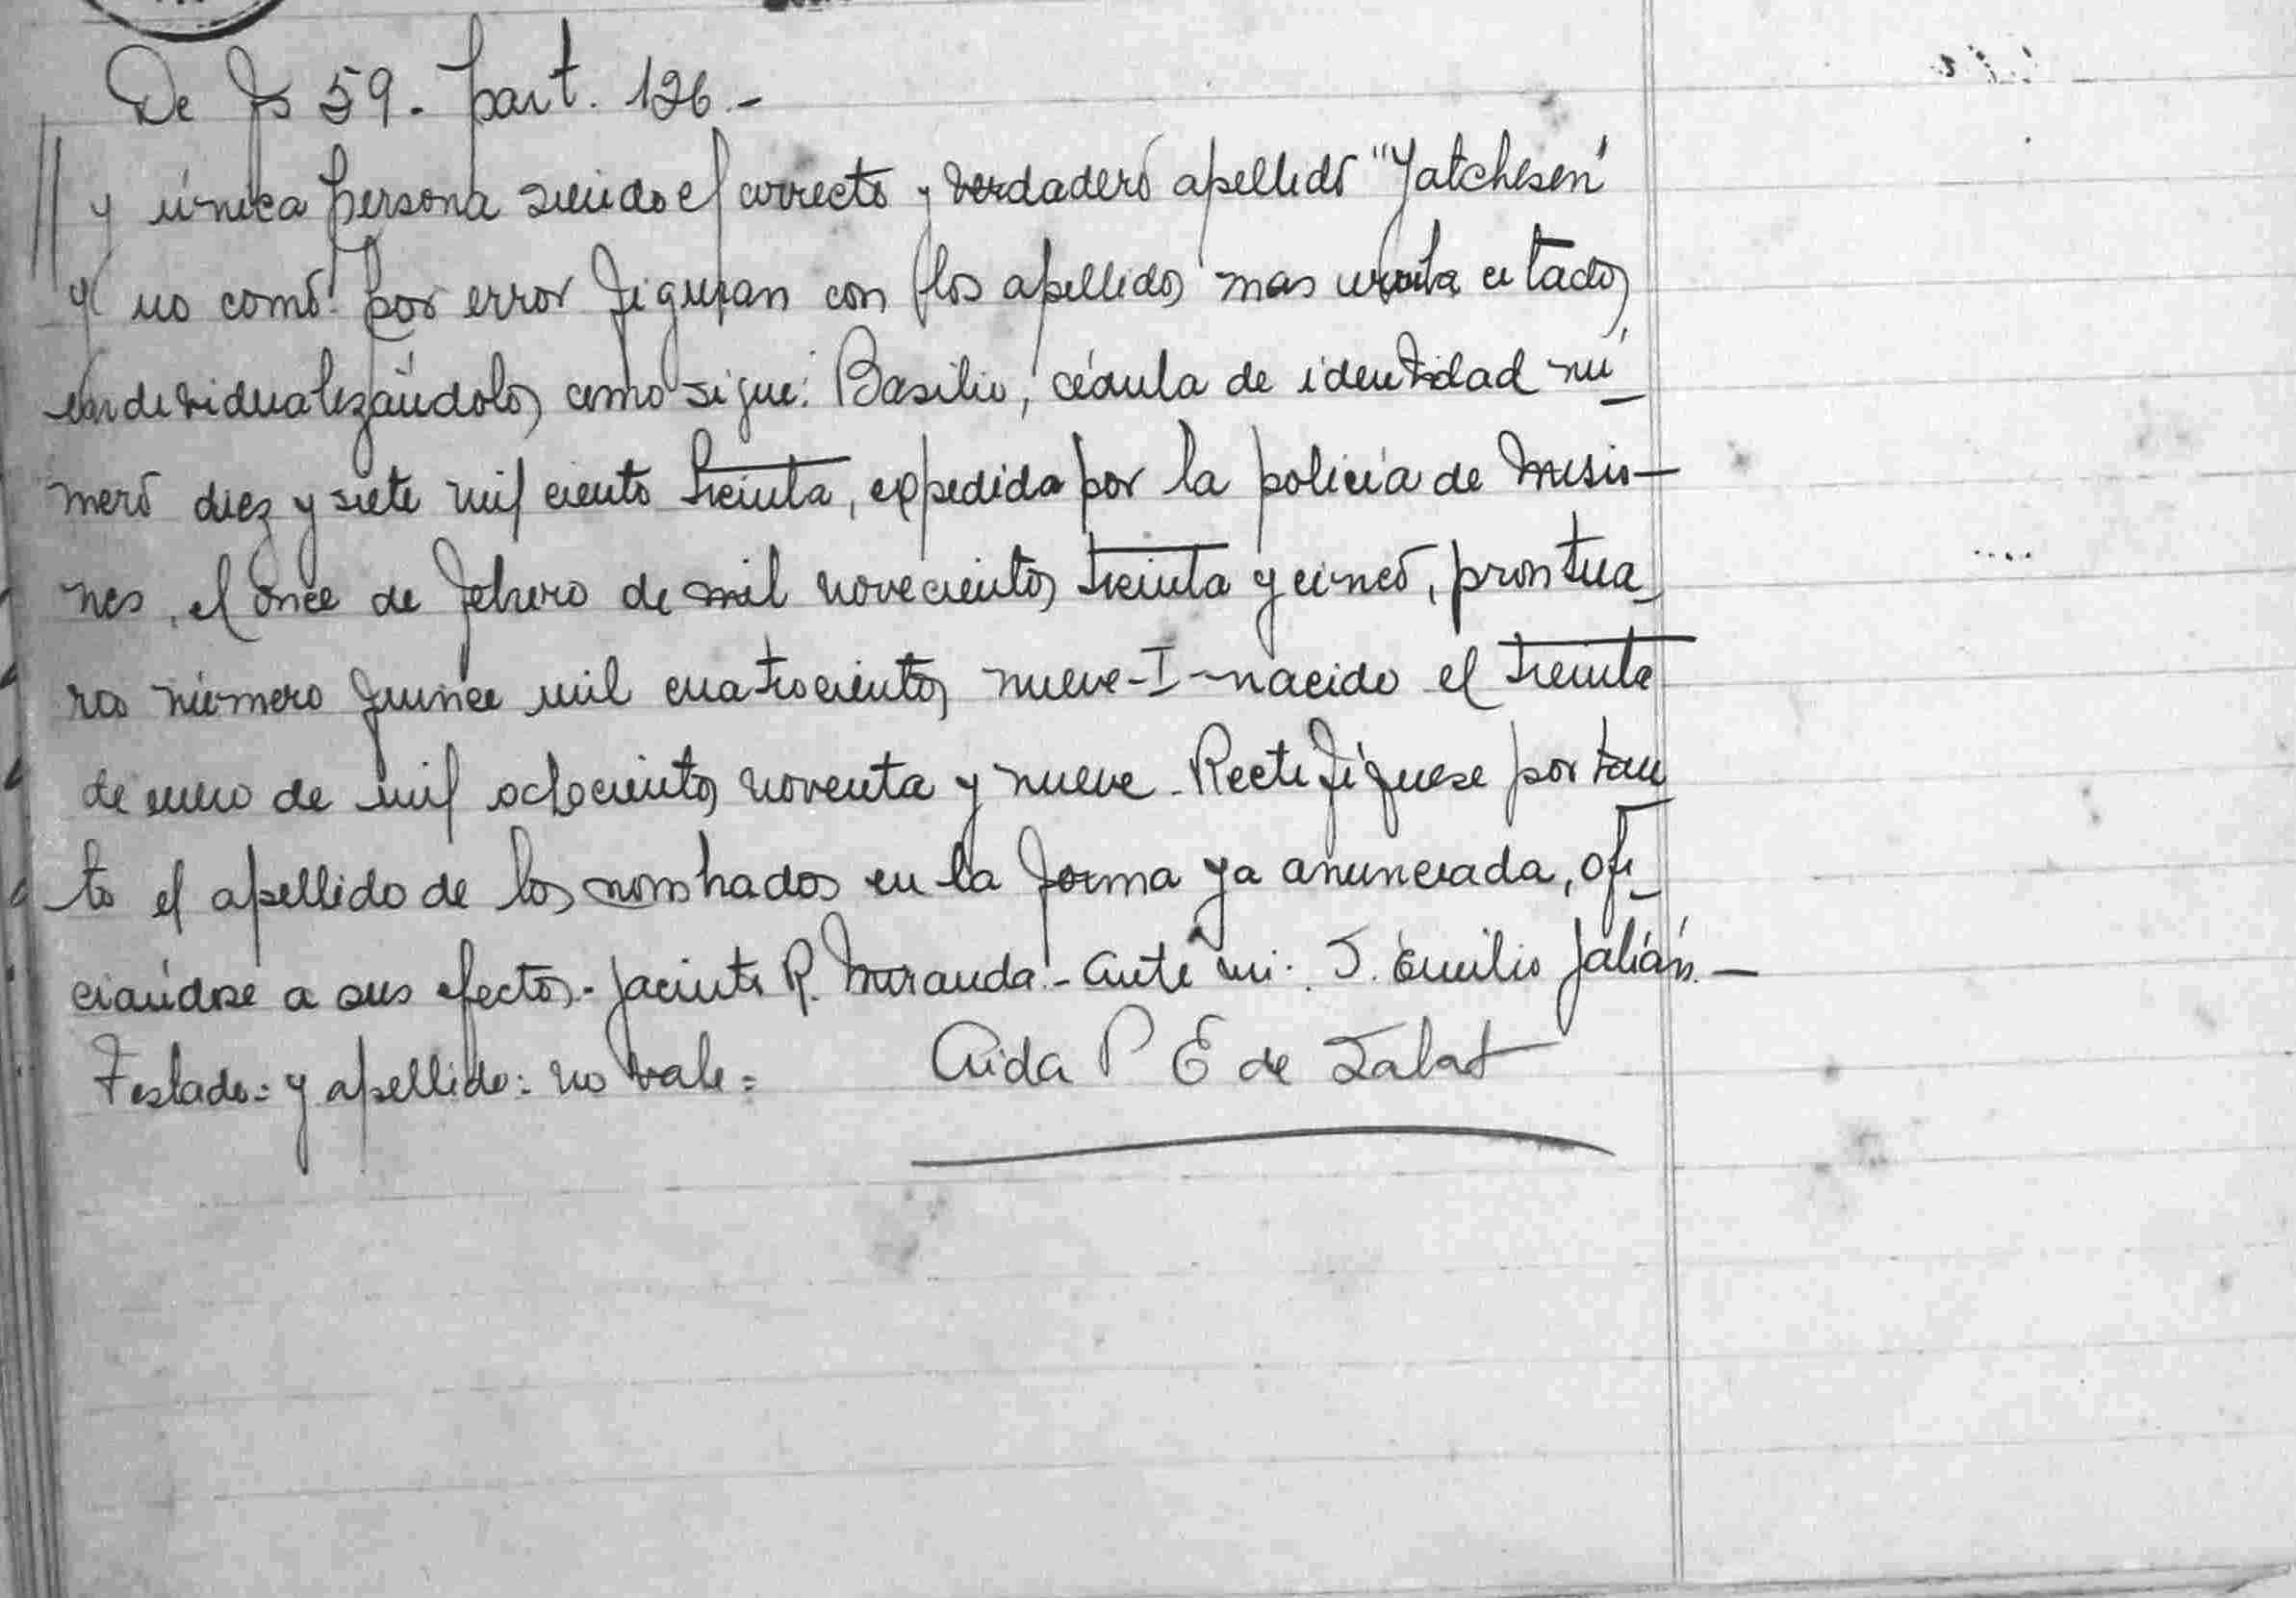 De fs 59. part. 126.-
// y única persona siendo el correcto y verdadero apellido "Yatchesen"
y no como por error figuran con los apellidos mas arriba citados,
individualizándolos como sigue: Basilio, cédula de identidad nú-
mero diez y siete mil ciento treinta, expedida por la policía de Misio-
nes, el once de febrero de mil novecientos treinta y cinco, prontua-
rio número quince mil cuatrocientos nueve-I-nacido el treinta
de enero de mil ochocientos noventa y nueve. Rectifíquese por tan
to el apellido de los nombrados en la forma ya anunciada, ofi-
ciándose a sus efectos.- Jacinto R. Miranda.- Ante mi: J. Emilio Jalián.-
Testado= y apellido: no vale=
Aida P E de